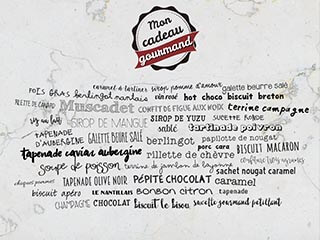 Mon
cadeau
gourmand
caramel à tartiner sirop pomme d'amour
FOIS GRAS berlingot nantais chocolat hot choco biscuit breton
galette beurre salé
RILLETTE DE CANARD Muscadet CONFIT DE FIGUE AUX NOIX terrine campagne
riz au lait SIROP DE MANGUE SIROP DE YUZU SUCETTE RONDE
TAPENADE D'AUBERGINE GALETTE BEURRE SALÉ sablé tartinade poivron
berlingot papillote de nougat
tapenade caviar aubergine porc cara BISCUIT MACARON
rillette de chèvre
soupe de poisson terrine de jambon de bayonne confiture trois agrumes
TAPENADE OLIVE NOIR PÉPITE CHOCOLAT sachet nougat caramel
caramel
biscuit apéro LE NANTILLAIS BONBON CITRON tapenade
CHAMPAGNE CHOCOLAT biscuit le bisou sucette gourmand pétillant